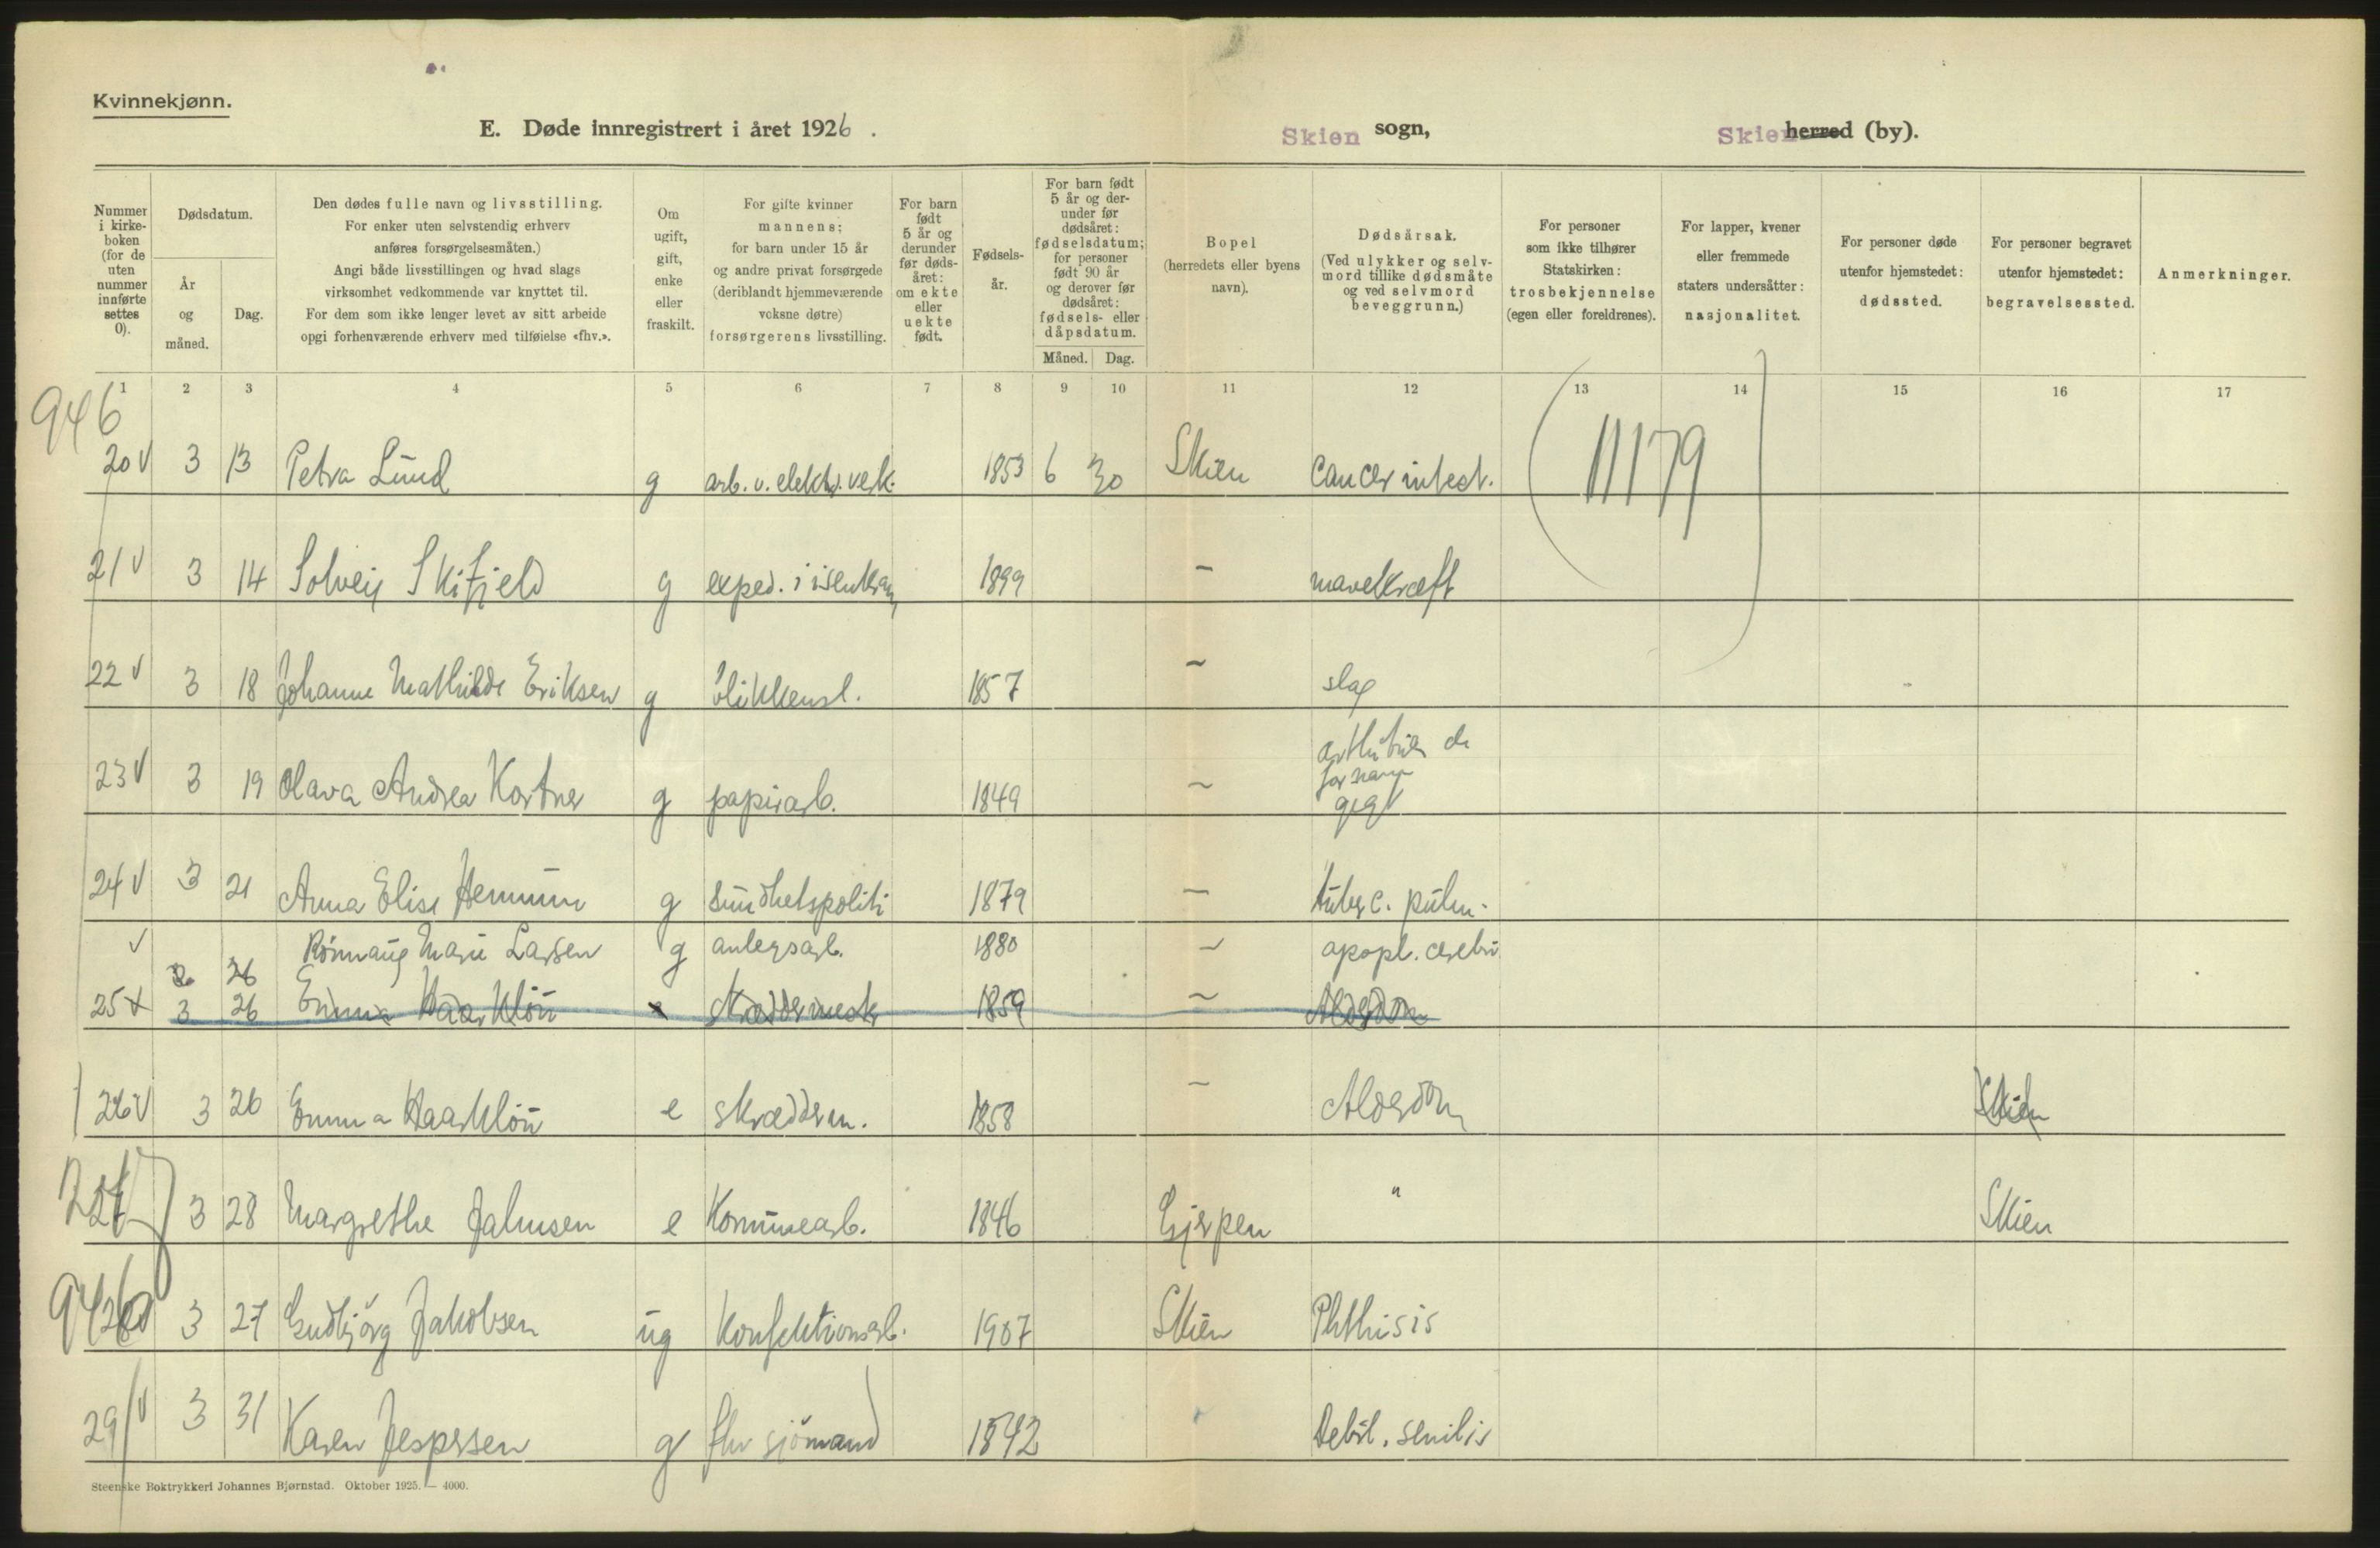 Kvinnekjønn.
E. Døde innregistrert i året 1926.
Skien sogn,
Skien herred (by).
Nummer i kirke-boken (for de uten nummer innførte settes 0).
Dødsdatum.
År og måned.
Dag.
Den dødes fulle navn og livsstilling.
For enker uten selvstendig erhverv
anføres forsørgelsesmåten.)
Angi både livsstillingen og hvad slags
virksomhet vedkommende var knyttet til.
For dem som ikke lenger levet av sitt arbeide
opgi forhenværende erhverv med tilføielse «fhv.».
Om ugift, gift, enke eller fraskilt.
For gifte kvinner
mannens;
for barn under 15 år
og andre privat forsørgede
(deriblandt hjemmeværende
voksne døtre)
forsørgerens livsstilling.
For barn født 5 år og derunder før døds-året: om ekte eller uekte født.
Fødsels-år.
For barn født 5 år og der-under før dødsåret: fødselsdatum; for personer født 90 år og derover før dødsåret: fødsels- eller dåpsdatum.
Måned. Dag.
Bopel
(herredets eller byens
navn).
Dødsårsak.
(Ved ulykker og selv-
mord tillike dødsmåte
og ved selvmord
beveggrunn.)
For personer
som ikke tilhører
Statskirken:
trosbekjennelse
(egen eller foreldrenes).
For lapper, kvener
eller fremmede
staters undersåtter:
nasjonalitet.
For personer døde
utenfor hjemstedet:
dødssted.
For personer begravet
utenfor hjemstedet:
begravelsessted.
Anmerkninger.
1 2 3 4 5 6 7 8 9 10 11 12 13 14 15 16 17
946
20 V 3 13 Petra Lund g arb. v. elektr. verk. 1853 6 30 Skien Cancer intest. (11179)
21 V 3 14 Solveig Skifjeld g exped. i isenkram 1899 - mavekræft
22 V 3 18 Johanne Mathilde Eriksen g blikkensl. 1857 - slag
23 V 3 19 Olava Andrea Kortner g papirarb. 1849 - arthritis de
24 V 3 21 Anna Elise Hemmum g Sundhetspoliti 1879 - tuberc. pulm.
V 26 Rönnaug Marie Larsen g anlegsarb. 1880 - apopl. cerebri
25 3 26 Emma Haarklöu e skreddermest 1859 - Alderdom
26 V 3 26 Emma Haarklöu e skrædderm. 1858 - Alderdom Skien
227 3 28 Margrethe Jahnsen e Komunearb. 1846 Gjerpen " Skien
946 28 3 27 Gudbjörg Jakobsen ug Konfektionsarb. 1907 Skien Phthisis
29 V 3 31 Karen Jespersen g fhv sjömand 1842 Debil. senilis
Steenske Boktrykkeri Johannes Bjørnstad. Oktober 1925. — 4000.